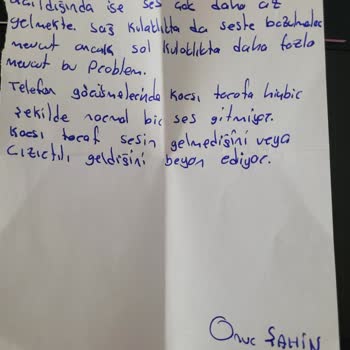 açıldığında ise ses çok daha az
gelmekte. Sağ kulaklıkta da seste bozulmalar
mevcut ancak sol kulaklıkta daha fazla
mevcut bu problem.
Telefon görüşmelerinde karşı tarafa hiçbir
şekilde normal bir ses gitmiyor.
Karşı taraf sesin gelmediğini veya
Cızırtılı geldiğini beyan ediyor.
Onur ŞAHİN